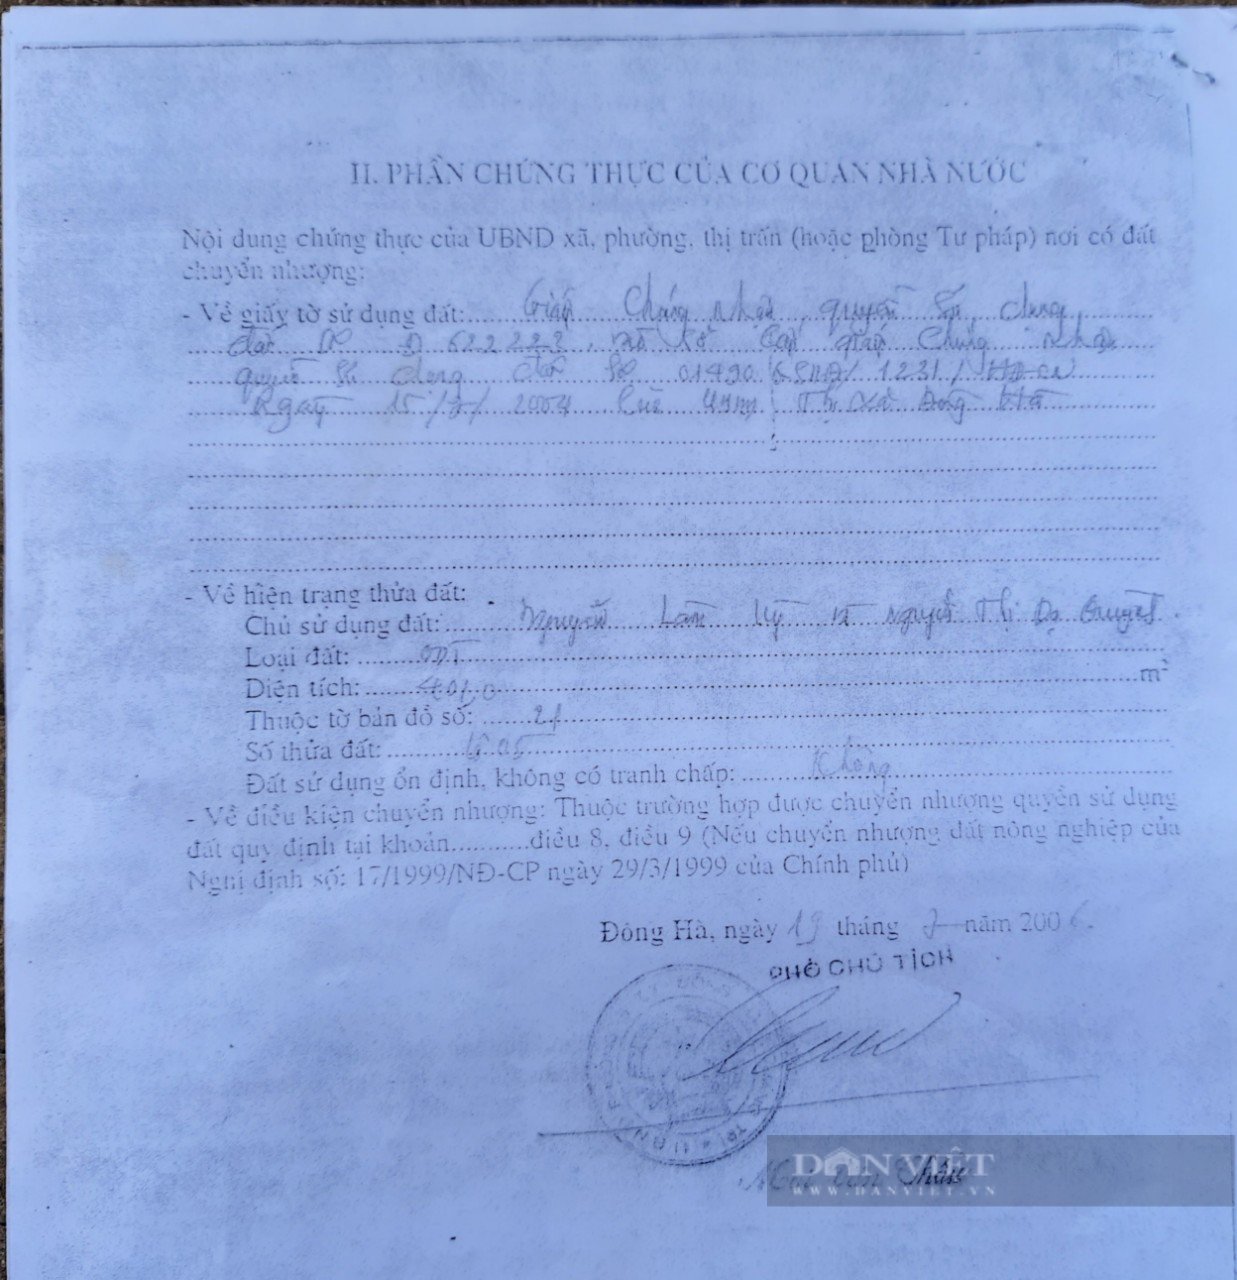 II. PHẦN CHỨNG THỰC CỦA CƠ QUAN NHÀ NƯỚC
Nội dung chứng thực của UBND xã, phường, thị trấn (hoặc phòng Tư pháp) nơi có đất
chuyển nhượng:
- Về giấy tờ sử dụng đất: Giấy Chứng nhận quyền sử dụng
đất số Đ 622222, vào sổ cấp giấy chứng nhận
quyền sử dụng đất số 01490 QSDĐ/1231/
Ngày 15/7/2004 của UBND Thị xã Đông Hà
- Về hiện trạng thửa đất:
Chủ sử dụng đất: Nguyễn Lâm Kỳ và Nguyễn Thị Dạ Quyên
Loại đất: ODT
Diện tích: 401,0 m²
Thuộc tờ bản đồ số: 21
Số thửa đất:
Đất sử dụng ổn định, không có tranh chấp: Không
- Về điều kiện chuyển nhượng: Thuộc trường hợp được chuyển nhượng quyền sử dụng
đất quy định tại khoản............điều 8, điều 9 (Nếu chuyển nhượng đất nông nghiệp của
Nghị định số: 17/1999/NĐ-CP ngày 29/3/1999 của Chính phủ)
Đông Hà, ngày 19 tháng 7 năm 2006.
PHÓ CHỦ TỊCH
DÂN VIỆT
WWW.DANVIET.VN